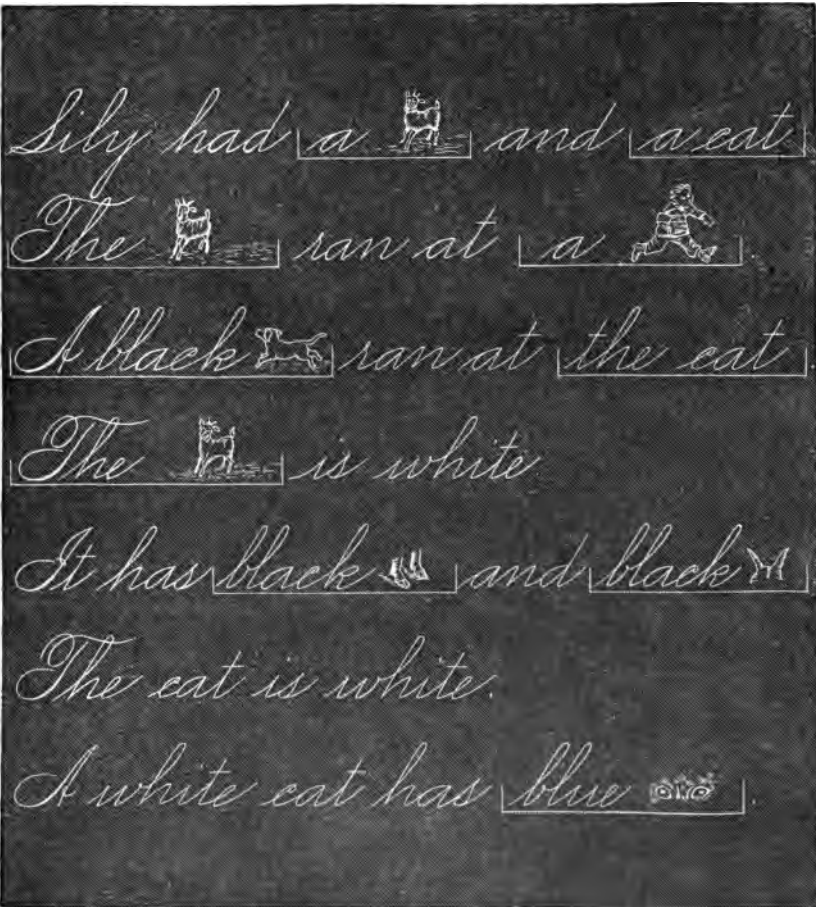 Lily had a and a cat
The ran at a .
A black ran at the cat.
The is white.
It has black and black
The cat is white.
A white cat has blue .